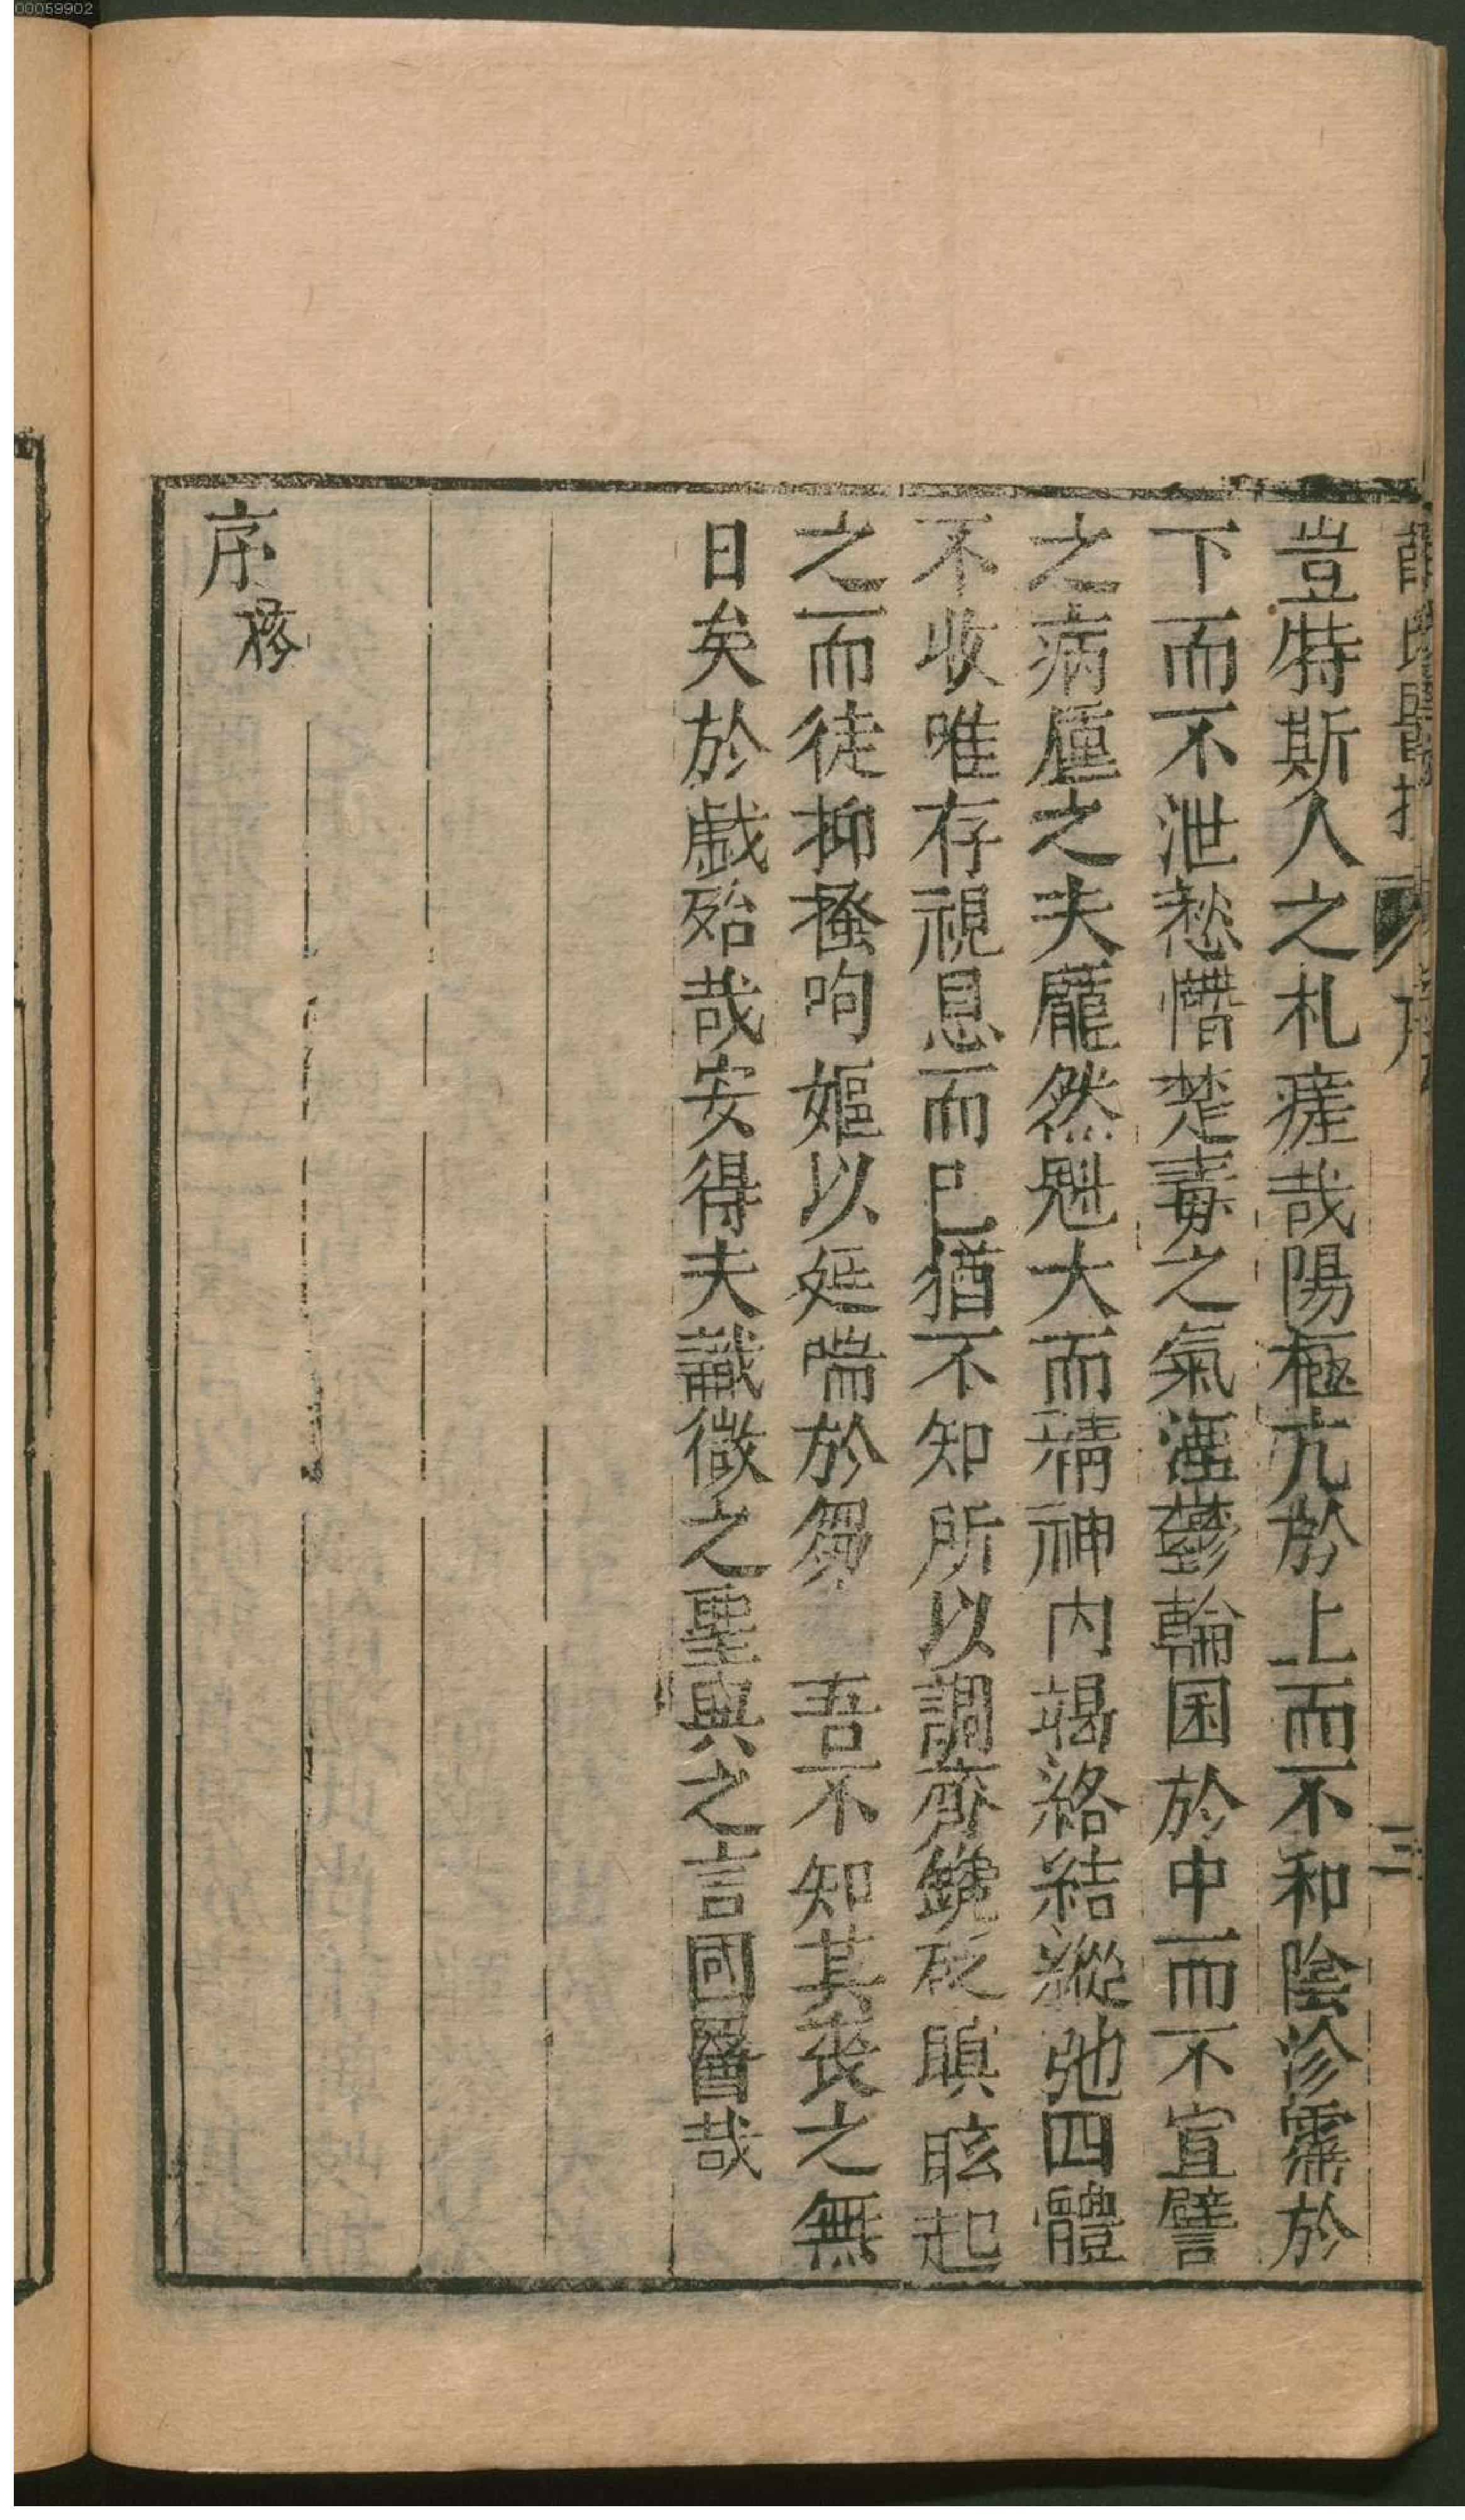 00059902
豈特斯人之札瘥哉陽極亢於上而不和陰沴霿於
下而不泄愁慴楚毒之氣湮鬱輪囷於中而不宣譬
之病尰之夫龐然魁大而精神內竭絡結縱弛四體
不收唯存視息而已猶不知所以調齊鑱砭瞑眩起
之而徒抑搔呴嫗以延喘於芻 吾不知其喪之無
日矣於戲殆哉安得夫識微之聖與之言國醫哉
序